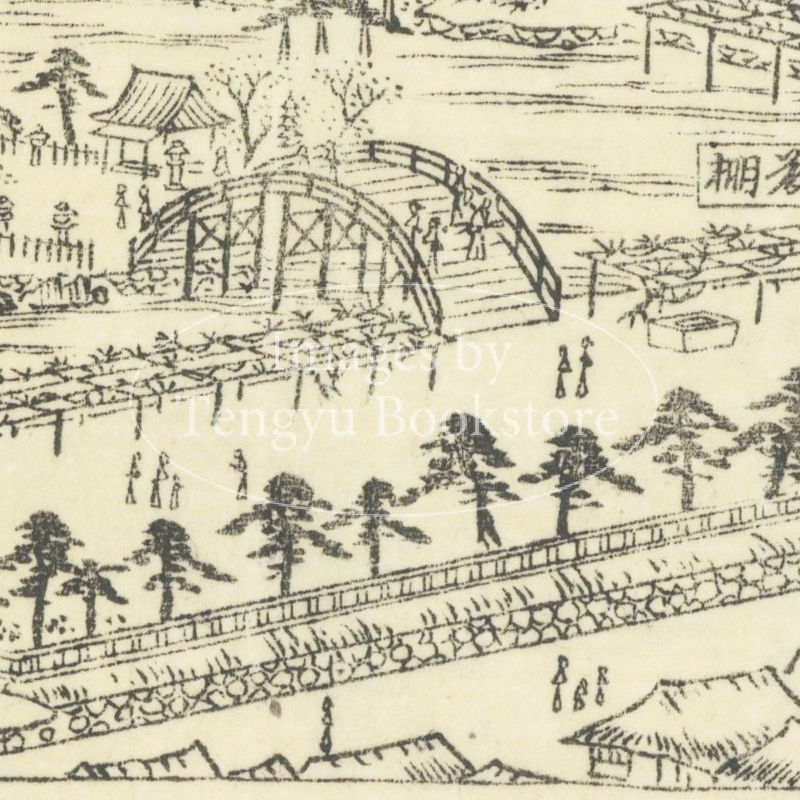 棚
Images by
Tengyu Bookstore